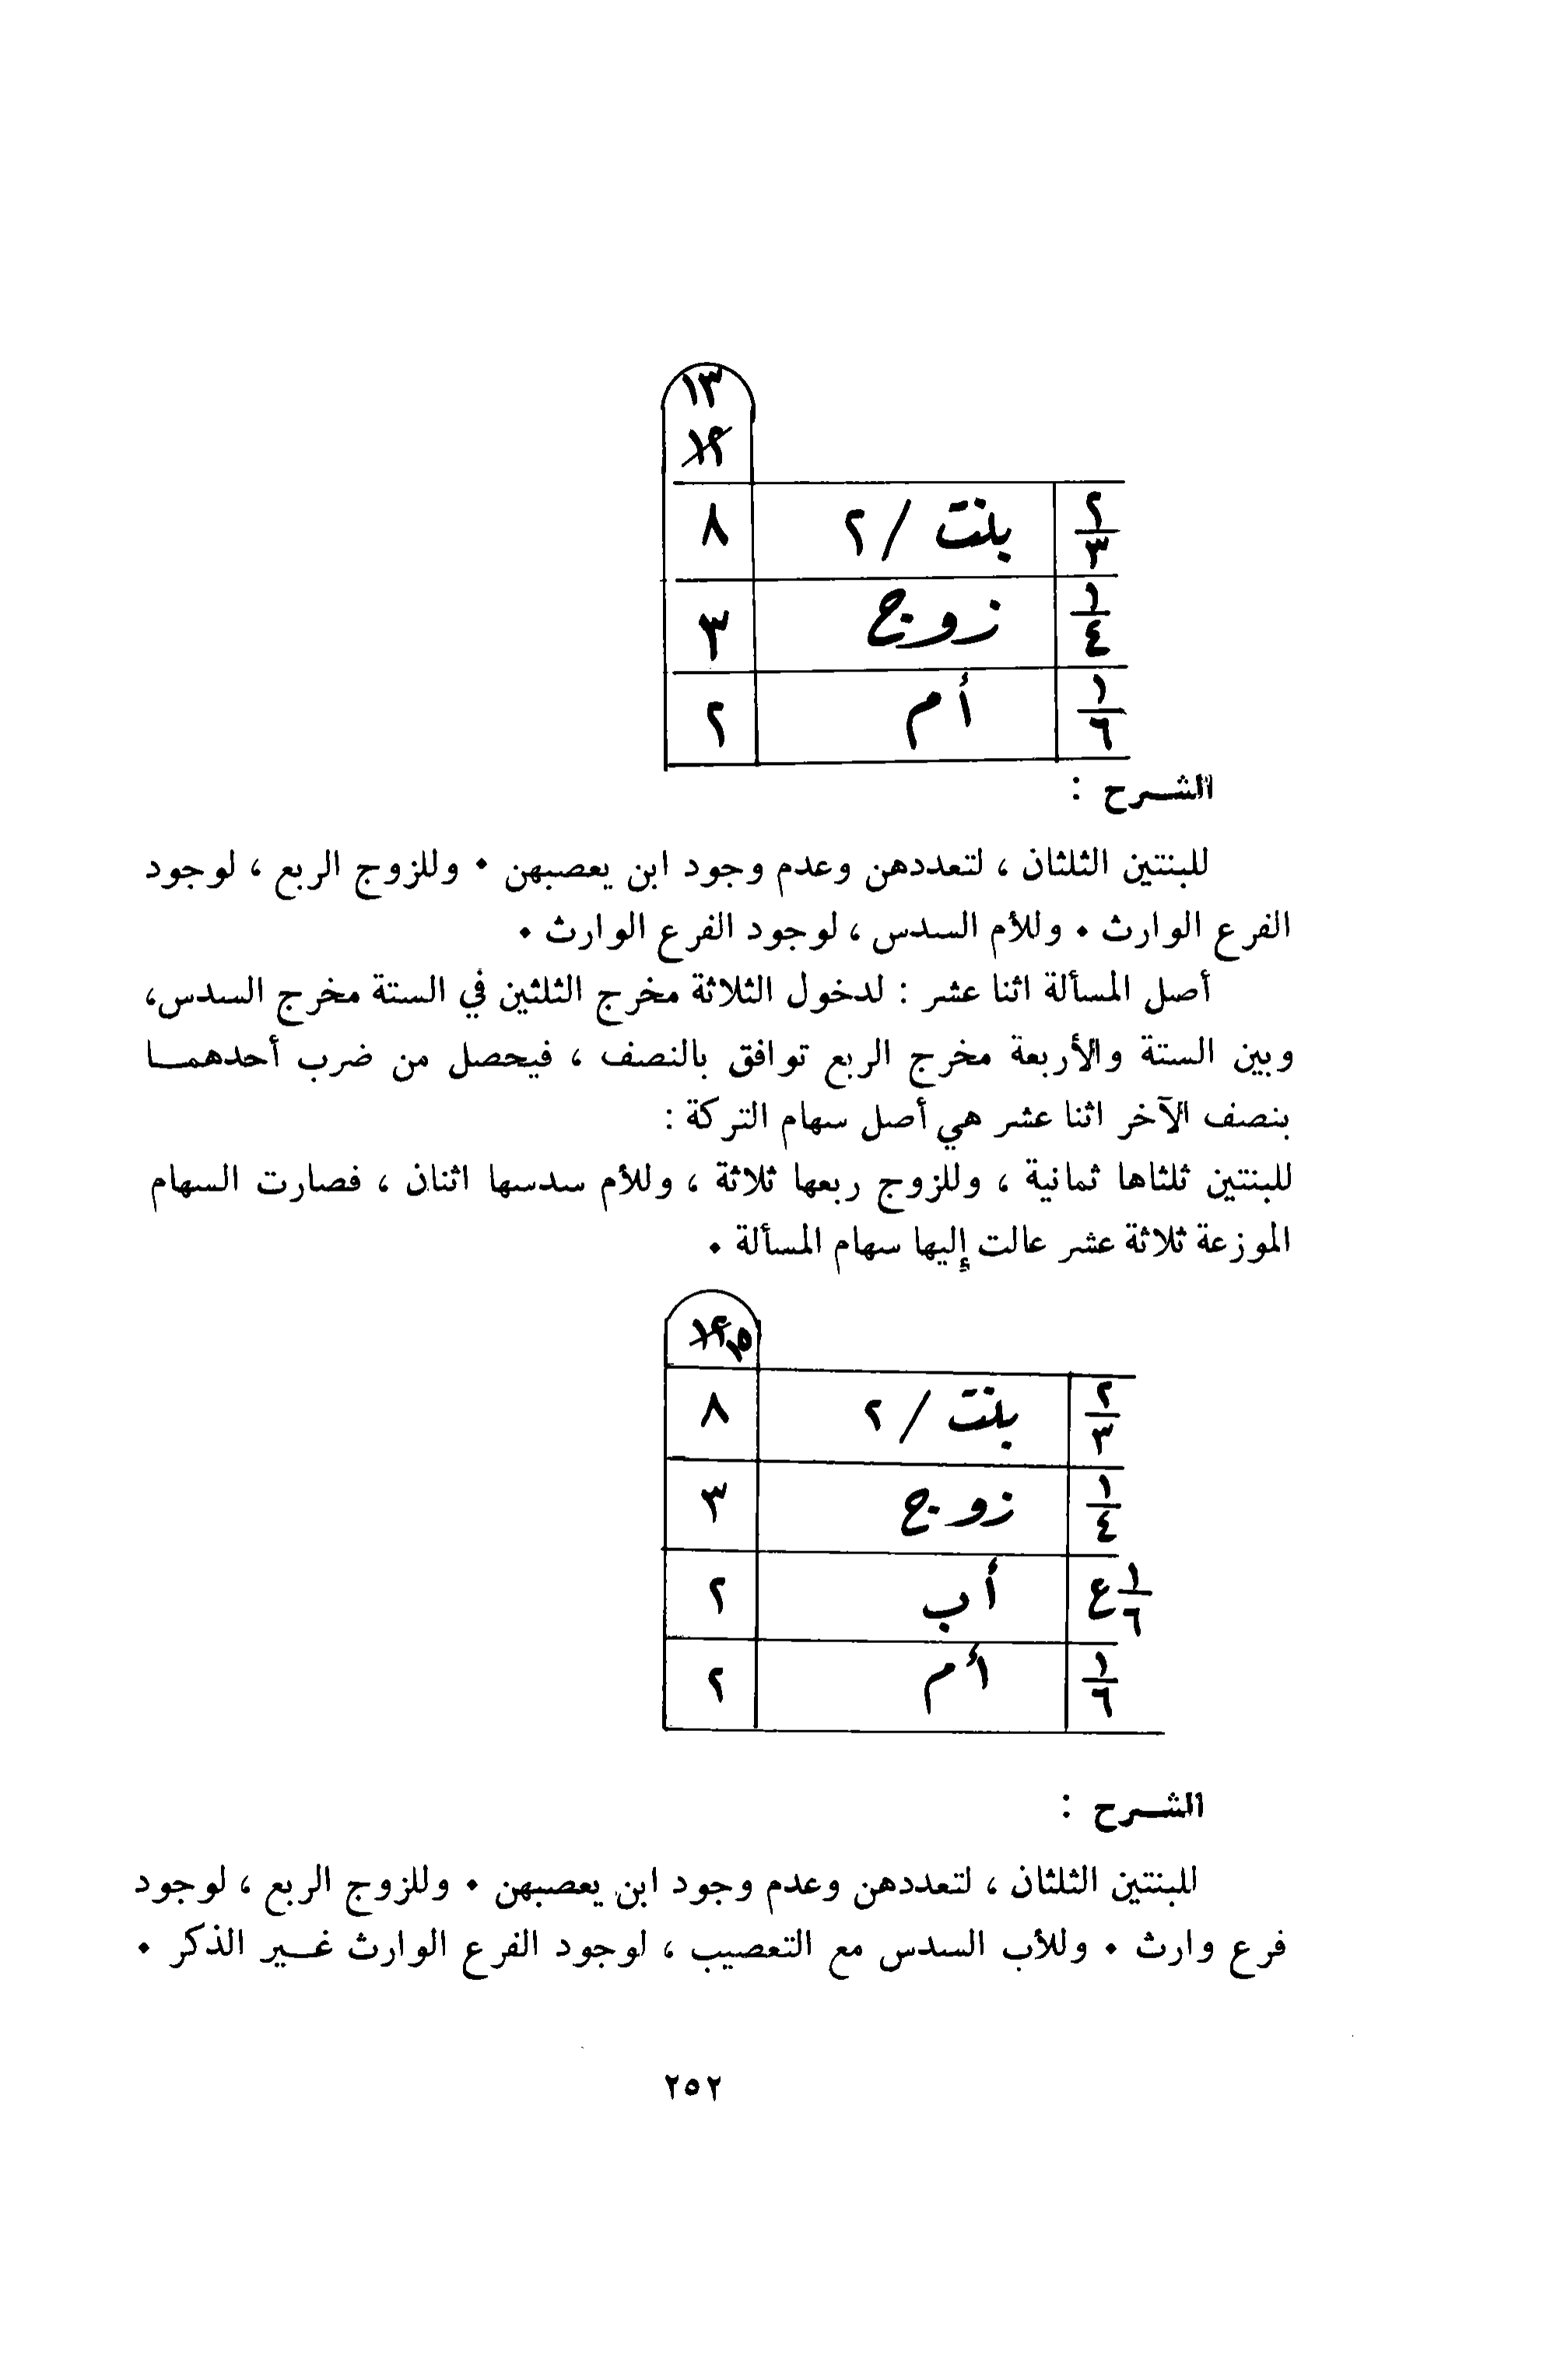 ١٣
١٢
٢/٣ بنت / ٢ ٨
١/٤ زوج ٣
١/٦ أم ٢
الشرح :
للبنتين الثلثان ، لتعددهن وعدم وجود ابن يعصبهن • وللزوج الربع ، لوجود
الفرع الوارث • وللأم السدس ، لوجود الفرع الوارث •
أصل المسألة اثنا عشر : لدخول الثلاثة مخرج الثلثين في الستة مخرج السدس،
وبين الستة والأربعة مخرج الربع توافق بالنصف ، فيحصل من ضرب أحدهما
بنصف الآخر اثنا عشر هي أصل سهام التركة :
للبنتين ثلثاها ثمانية ، وللزوج ربعها ثلاثة ، وللأم سدسها اثنان ، فصارت السهام
الموزعة ثلاثة عشر عالت إليها سهام المسألة •
١٢ ١٥
٢/٣ بنت / ٢ ٨
١/٤ زوج ٣
١/٦ ع أب ٢
١/٦ أم ٢
الشرح :
للبنتين الثلثان ، لتعددهن وعدم وجود ابن يعصبهن • وللزوج الربع ، لوجود
فرع وارث • وللأب السدس مع التعصيب ، لوجود الفرع الوارث غير الذكر •
٢٥٢